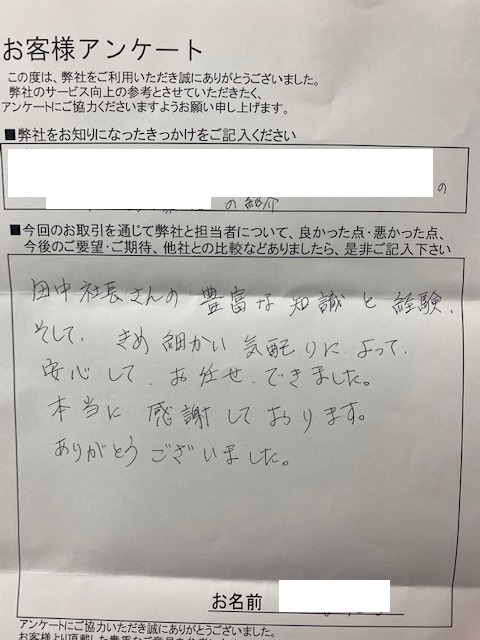 お客様アンケート
この度は、弊社をご利用いただき誠にありがとうございました。
弊社のサービス向上の参考とさせていただきたく、
アンケートにご協力くださいますようお願い申し上げます。
■弊社をお知りになったきっかけをご記入ください
の
の紹介
■今回のお取引を通じて弊社と担当者について、良かった点・悪かった点、
今後のご要望・ご期待、他社との比較などありましたら、是非ご記入下さい
田中社長さんの豊富な知識と経験、
そして、きめ細かい気配りによって、
安心して、お任せ、できました。
本当に感謝しております。
ありがとうございました。
お名前
アンケートにご協力いただき誠にありがとうございました。
お客様より頂戴した貴重なご意見を